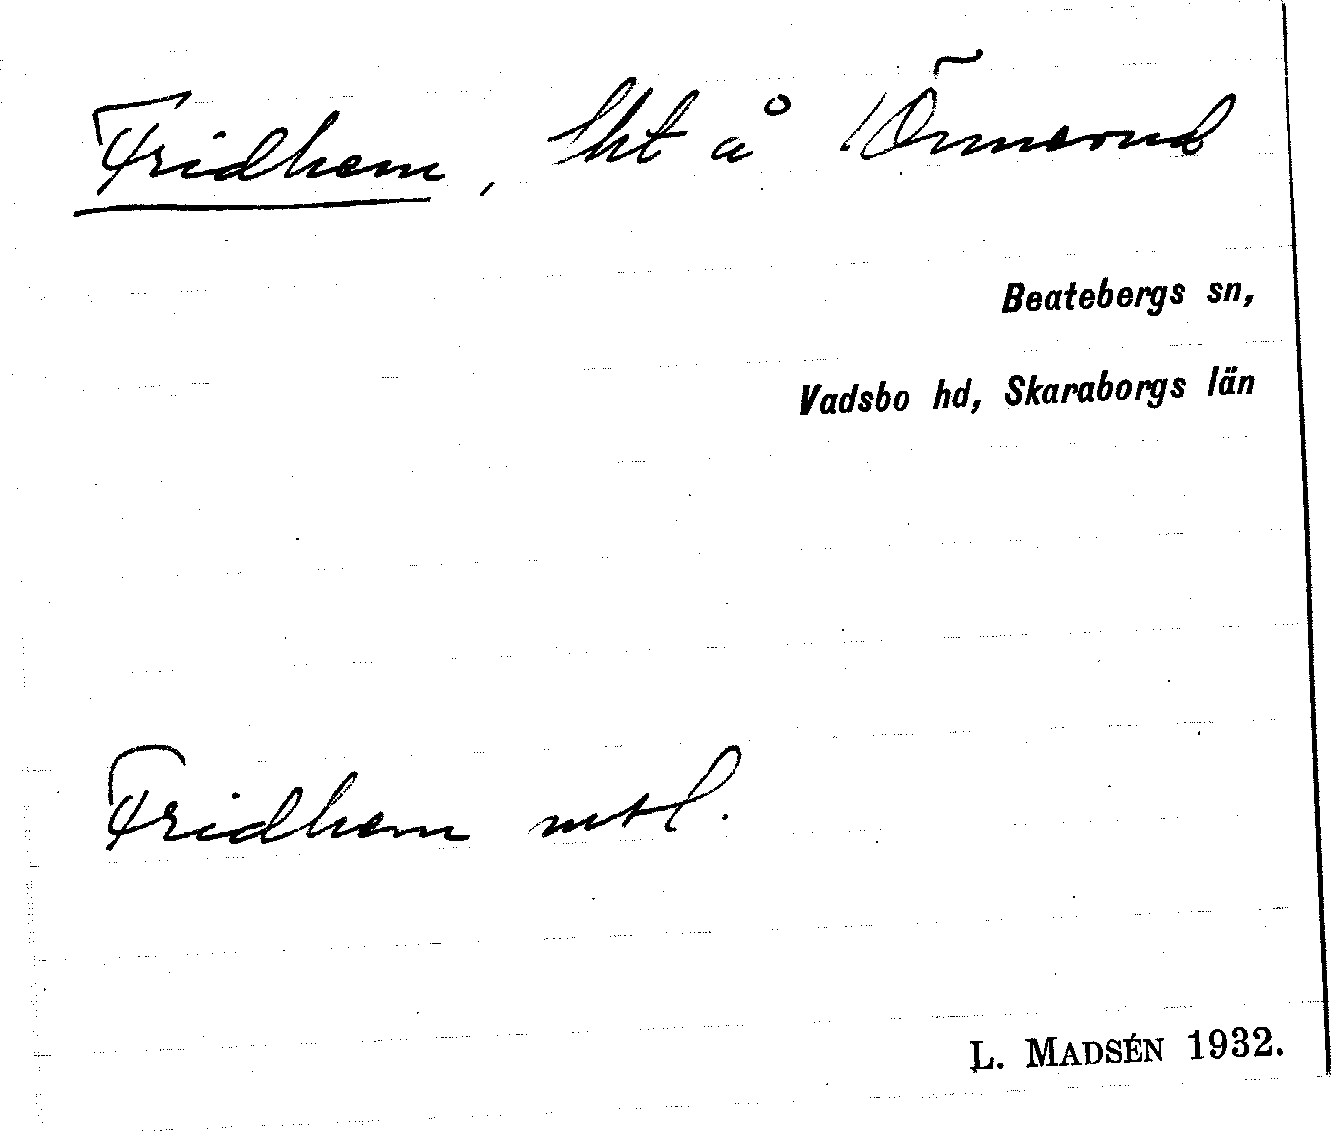 Fridhem, lht å 1 Örmsrud
Beatebergs sn,
Vadsbo hd, Skaraborgs län
Fridhem mtl.
L. MADSÉN 1932.